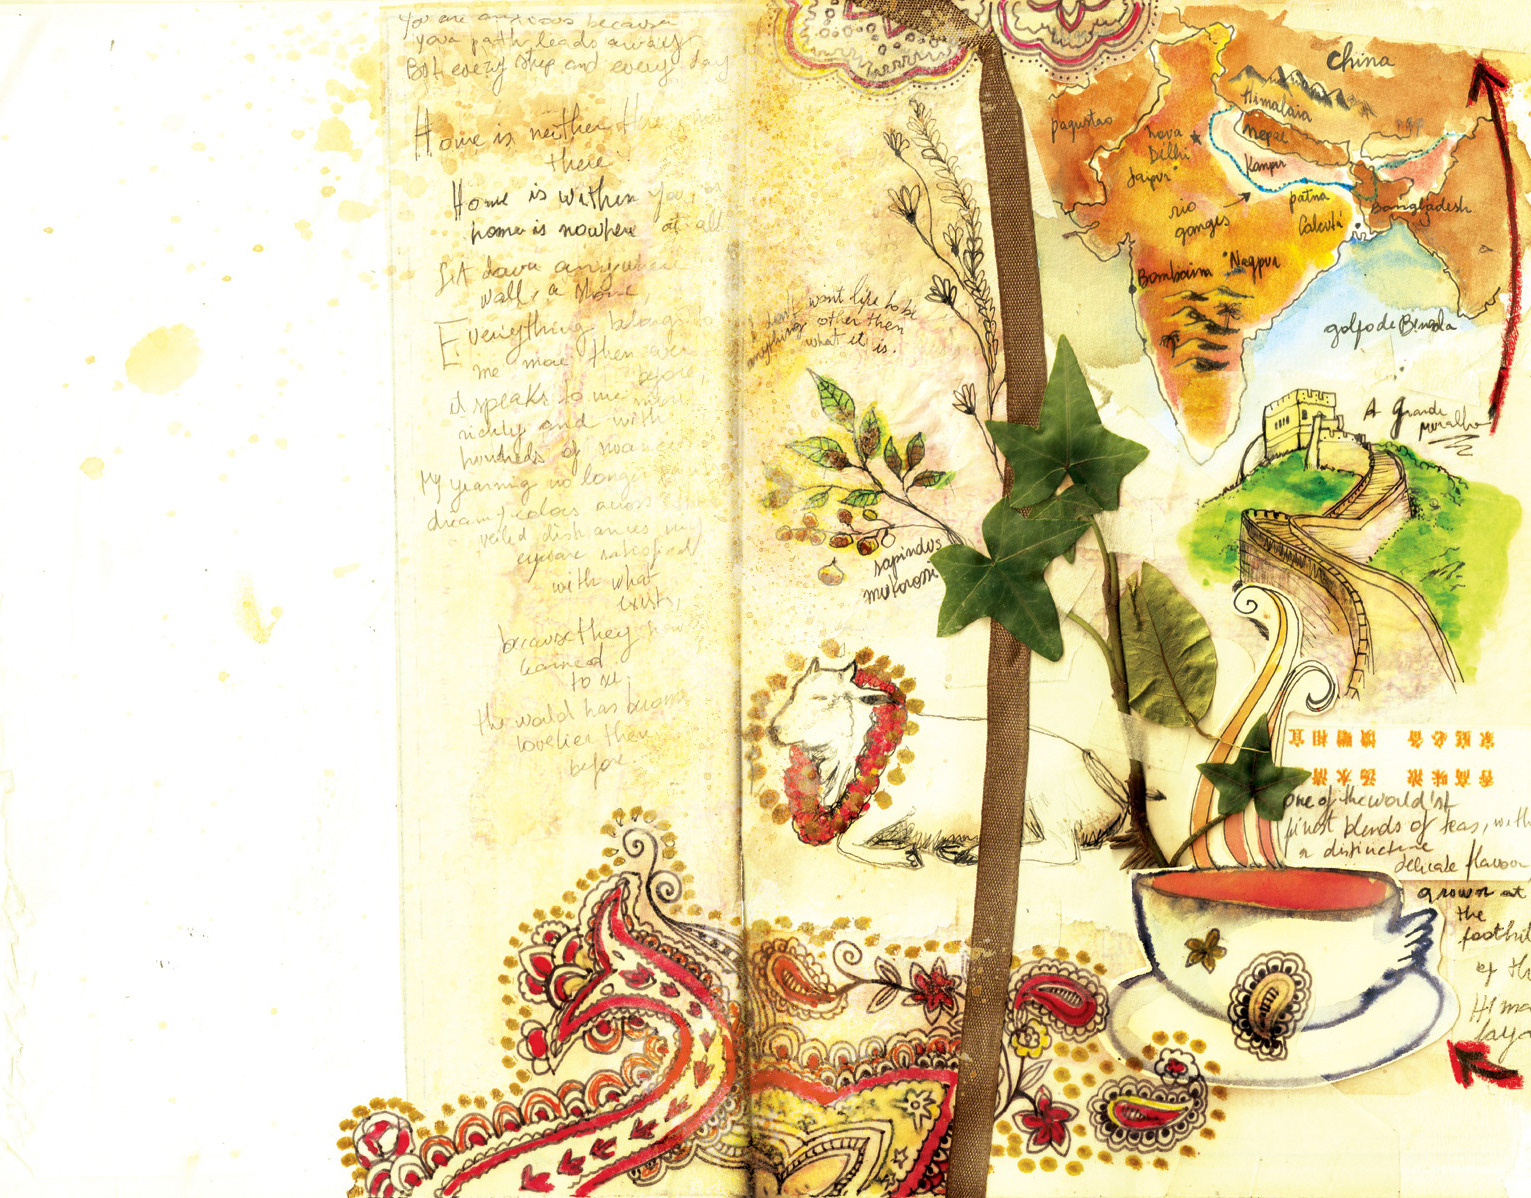 You are anxious because
your path leads away
But every step and every day
Home is neither
there
Home is within you,
home is nowhere at all
Sit down anywhere
wall, a stone,
Everything belongs to
me more then ever
before,
it speaks to me more
richly and with
hundreds of
My yearning no longer
dream/colors across
veiled distances my
eyes are satisfied
with what
exist,
because they
learned
to see.
the world has become
lovelier then
before.
I don't want life to be
anything other then
what it is.
sapindus
mukorossi
China
Himalaia
nepal
paquistao
nova
Delhi
Jaipur
Kanpur
rio
ganges
patna
Calcutá
Bangladesh
Bombaim
Nagpur
golfo de Bengala
A grande
muralha
家庭必备 馈赠相宜
香高味浓 汤水清
one of the world'st
finest blends of teas, with
a distinctive
delicate flavour
grown at
the
foothil
of the
Hima
laya